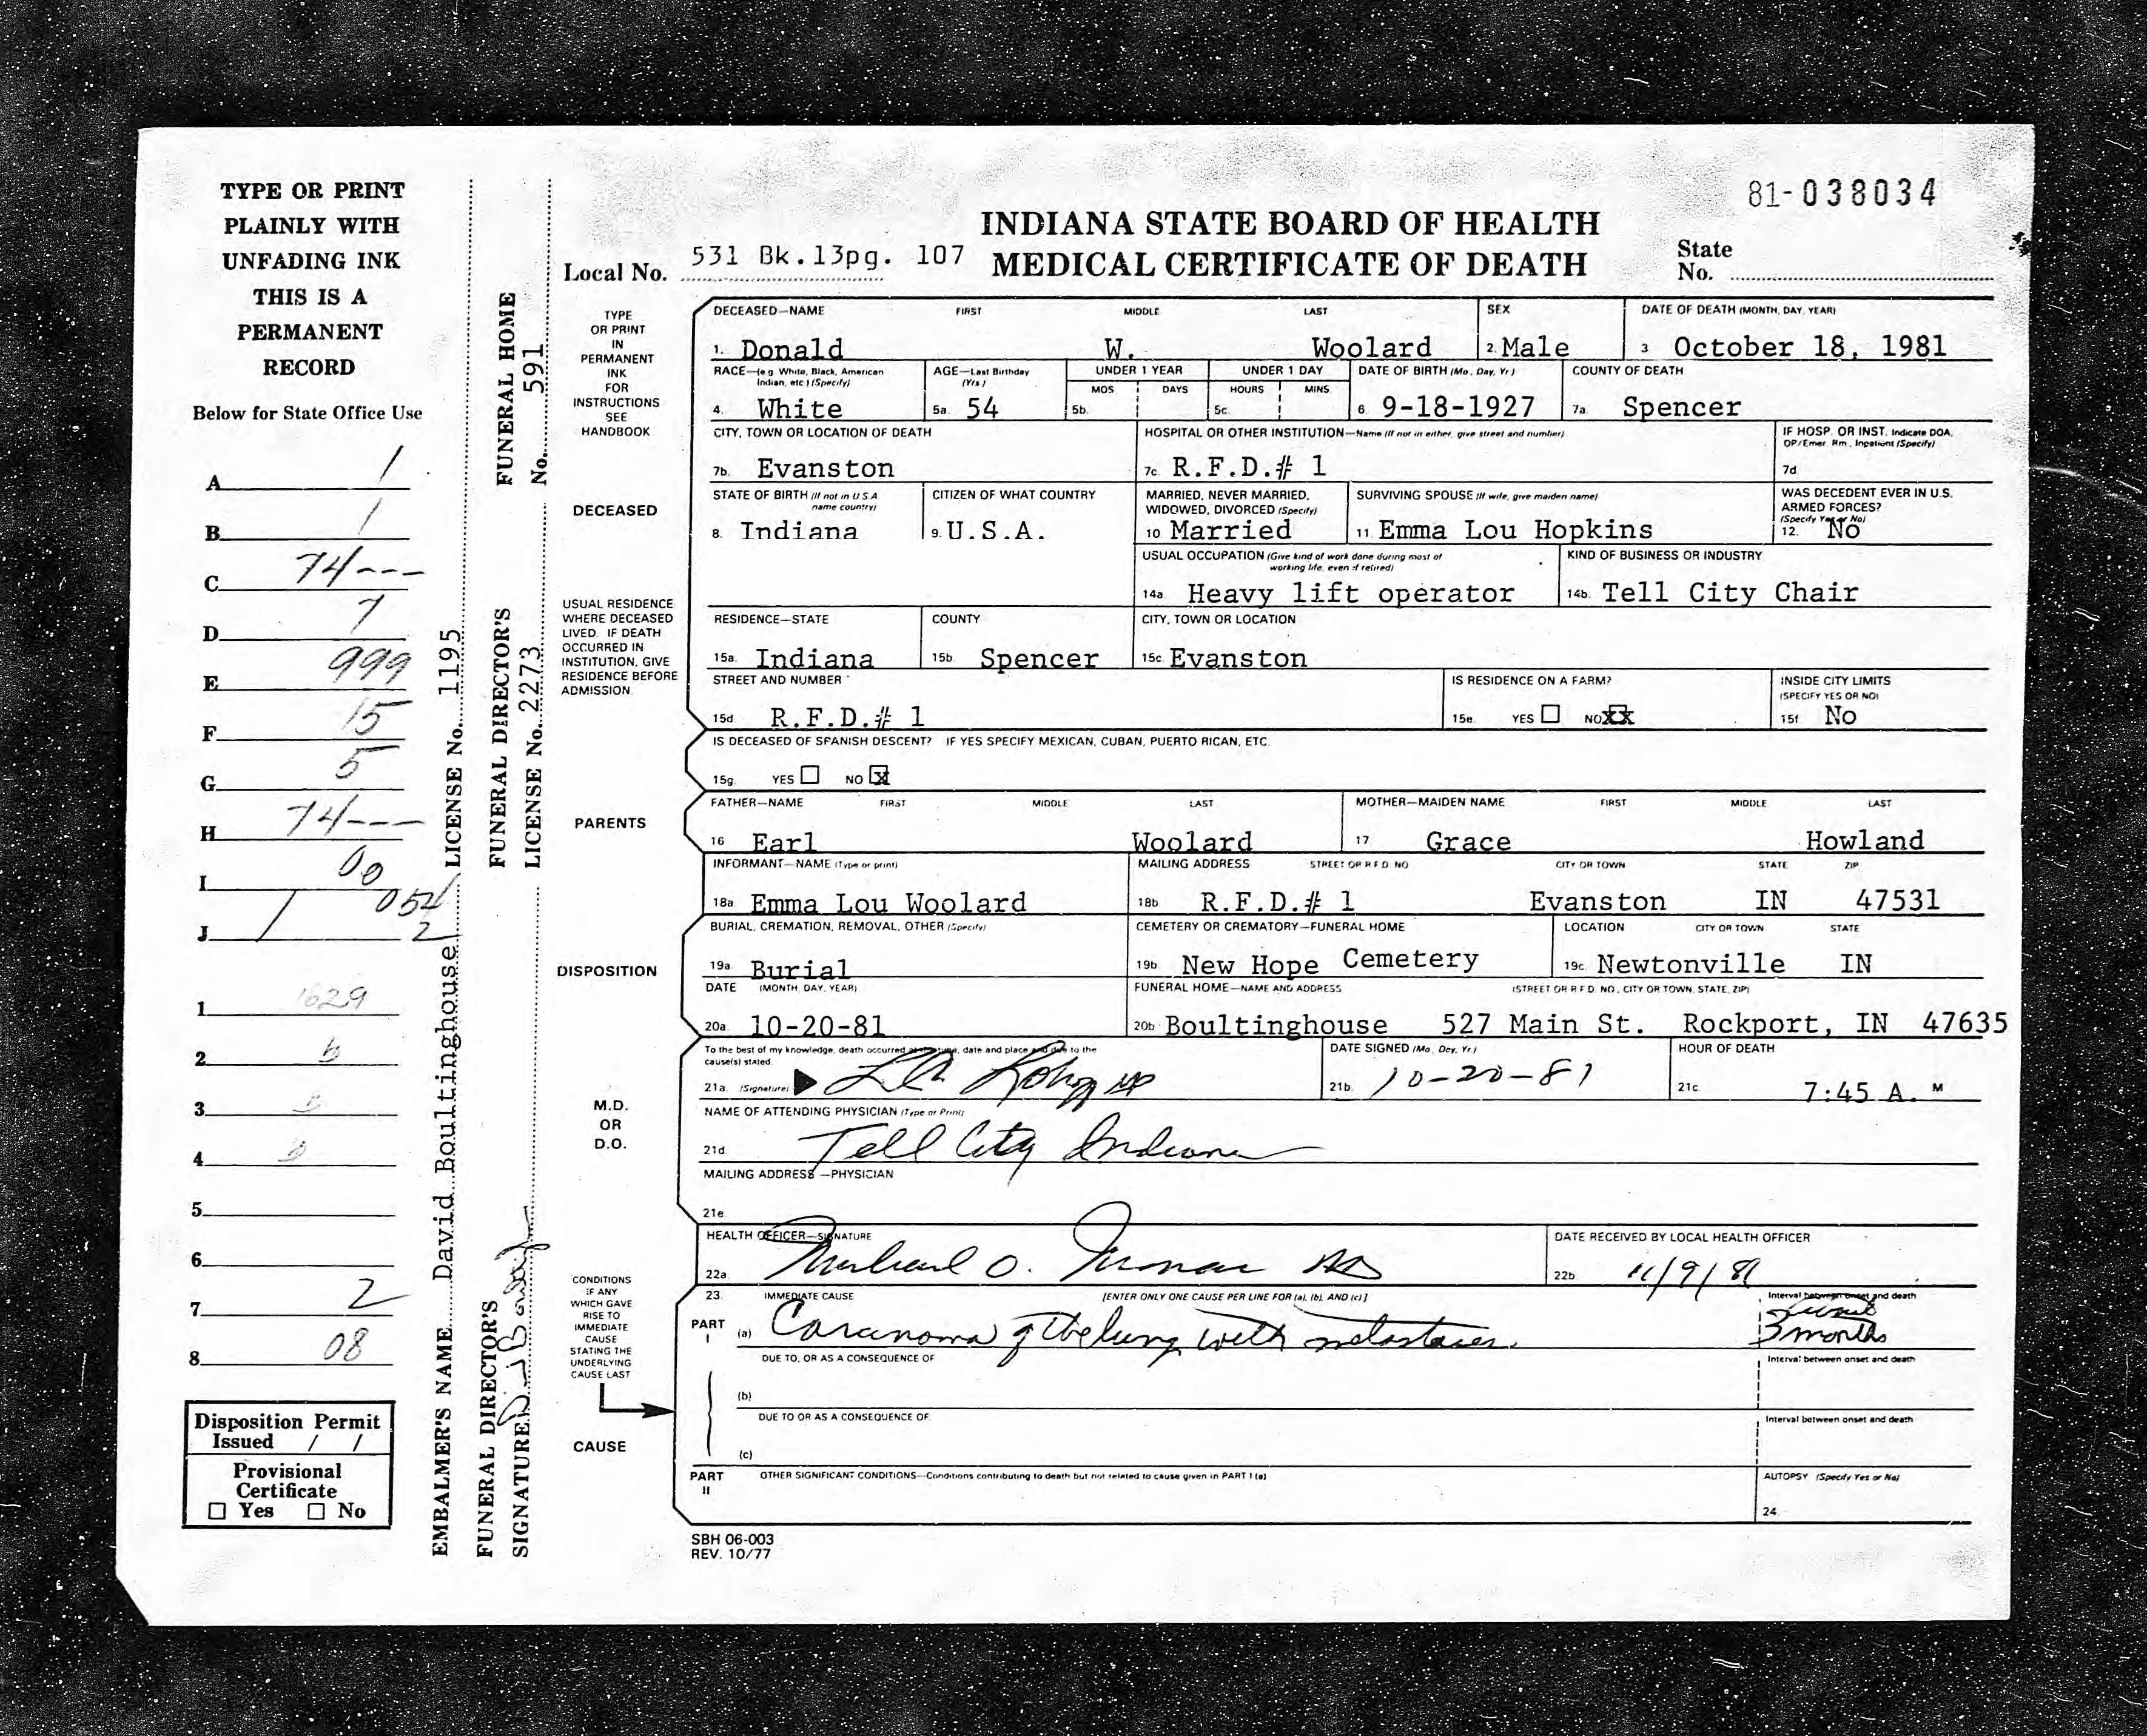 81-038034
INDIANA STATE BOARD OF HEALTH
MEDICAL CERTIFICATE OF DEATH
Local No. 531 Bk.13pg. 107
State
No.
TYPE OR PRINT
PLAINLY WITH
UNFADING INK
THIS IS A
PERMANENT
RECORD
Below for State Office Use
A 1
B 1
C 74---
D 7
E 999
F 15
G 5
H 74---
I 00
054
J / 2
1. 1629
2. b
3.
4.
5.
6.
7. 2
8. 08
Disposition Permit
Issued / /
Provisional
Certificate
☐ Yes ☐ No
EMBALMER'S NAME David Boultinghouse LICENSE No. 1195
FUNERAL DIRECTOR'S
SIGNATURE
FUNERAL DIRECTOR'S
LICENSE No. 2273
FUNERAL HOME
No. 591
TYPE
OR PRINT
IN
PERMANENT
INK
FOR
INSTRUCTIONS
SEE
HANDBOOK
DECEASED
USUAL RESIDENCE
WHERE DECEASED
LIVED. IF DEATH
OCCURRED IN
INSTITUTION, GIVE
RESIDENCE BEFORE
ADMISSION.
PARENTS
DISPOSITION
M.D.
OR
D.O.
CONDITIONS
IF ANY
WHICH GAVE
RISE TO
IMMEDIATE
CAUSE
STATING THE
UNDERLYING
CAUSE LAST
CAUSE
DECEASED—NAME FIRST MIDDLE LAST SEX DATE OF DEATH (MONTH, DAY, YEAR)
1. Donald W. Woolard 2. Male 3 October 18, 1981
RACE—(e.g. White, Black, American AGE—Last Birthday UNDER 1 YEAR UNDER 1 DAY DATE OF BIRTH (Mo, Day, Yr) COUNTY OF DEATH
Indian, etc.) (Specify) (Yrs.) MOS DAYS HOURS MINS.
4. White 5a. 54 5b. 5c. 6. 9-18-1927 7a. Spencer
CITY, TOWN OR LOCATION OF DEATH HOSPITAL OR OTHER INSTITUTION—Name (If not in either, give street and number) IF HOSP. OR INST. Indicate DOA,
OP/Emer. Rm., Inpatient (Specify)
7b. Evanston 7c. R.F.D.# 1 7d.
STATE OF BIRTH (If not in U.S.A. CITIZEN OF WHAT COUNTRY MARRIED, NEVER MARRIED, SURVIVING SPOUSE (If wife, give maiden name) WAS DECEDENT EVER IN U.S.
name country) WIDOWED, DIVORCED (Specify) ARMED FORCES?
(Specify Yes or No)
8. Indiana 9. U.S.A. 10 Married 11. Emma Lou Hopkins 12. No
USUAL OCCUPATION (Give kind of work done during most of KIND OF BUSINESS OR INDUSTRY
working life, even if retired)
14a. Heavy lift operator 14b. Tell City Chair
RESIDENCE—STATE COUNTY CITY, TOWN OR LOCATION
15a. Indiana 15b. Spencer 15c. Evanston
STREET AND NUMBER IS RESIDENCE ON A FARM? INSIDE CITY LIMITS
(SPECIFY YES OR NO)
15d. R.F.D.# 1 15e. YES ☐ NO XX 15f. No
IS DECEASED OF SPANISH DESCENT? IF YES SPECIFY MEXICAN, CUBAN, PUERTO RICAN, ETC.
15g. YES ☐ NO X
FATHER—NAME FIRST MIDDLE LAST MOTHER—MAIDEN NAME FIRST MIDDLE LAST
16 Earl Woolard 17 Grace Howland
INFORMANT—NAME (Type or print) MAILING ADDRESS STREET OR R.F.D. NO CITY OR TOWN STATE ZIP
18a. Emma Lou Woolard 18b R.F.D.# 1 Evanston IN 47531
BURIAL, CREMATION, REMOVAL, OTHER (Specify) CEMETERY OR CREMATORY—FUNERAL HOME LOCATION CITY OR TOWN STATE
19a Burial 19b New Hope Cemetery 19c. Newtonville IN
DATE (MONTH, DAY, YEAR) FUNERAL HOME—NAME AND ADDRESS (STREET OR R.F.D. NO., CITY OR TOWN, STATE, ZIP)
20a. 10-20-81 20b. Boultinghouse 527 Main St. Rockport, IN 47635
To the best of my knowledge, death occurred at the time, date and place and due to the DATE SIGNED (Mo, Day, Yr) HOUR OF DEATH
cause(s) stated.
21a. (Signature) MD 21b. 10-20-81 21c. 7:45 A. M
NAME OF ATTENDING PHYSICIAN (Type or Print)
21d. Tell City Indiana
MAILING ADDRESS—PHYSICIAN
21e.
HEALTH OFFICER—SIGNATURE DATE RECEIVED BY LOCAL HEALTH OFFICER
22a. Michael O. 22b. 11/9/81
23. IMMEDIATE CAUSE [ENTER ONLY ONE CAUSE PER LINE FOR (a), (b), AND (c)] Interval between onset and death
PART
I (a) Carcinoma of the lung with metastases. 3 months
DUE TO, OR AS A CONSEQUENCE OF Interval between onset and death
(b)
DUE TO OR AS A CONSEQUENCE OF Interval between onset and death
(c)
PART
II OTHER SIGNIFICANT CONDITIONS—Conditions contributing to death but not related to cause given in PART I (a) AUTOPSY (Specify Yes or No)
24.
SBH 06-003
REV. 10/77